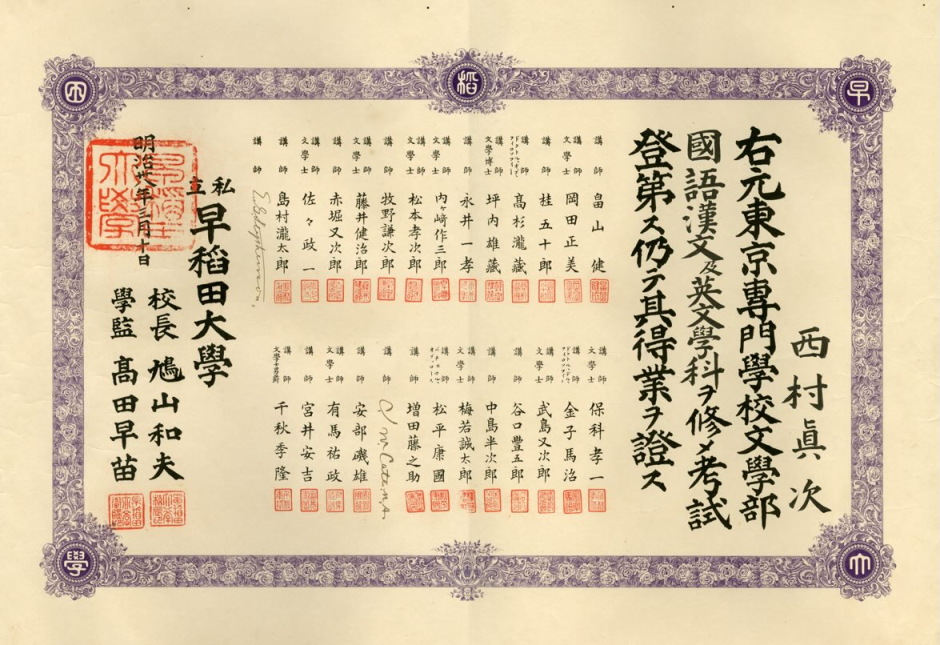 早
稻
田
大
學
西村眞次
右元東京専門學校文學部
國語漢文及英文學科ヲ修メ考試
登第ス仍テ其得業ヲ證ス
講師 畠山健
講師 文學士 岡田正美
講師 桂五十郎
講師 高杉瀧藏
講師 文學博士 坪内雄藏
講師 永井一孝
講師 文學士 内ヶ崎作三郎
講師 文學士 松本孝次郎
講師 牧野謙次郎
講師 文學士 藤井健治郎
講師 赤堀又次郎
講師 文學士 佐々政一
講師 島村瀧太郎
講師 文學士 保科孝一
講師 金子馬治
講師 文學士 武島又次郎
講師 谷口豊五郎
講師 中島半次郎
講師 文學士 梅若誠太郎
講師 松平康國
講師 増田藤之助
講師 Cate M.A.
講師 安部磯雄
講師 文學士 有馬祐政
講師 宮井安吉
講師 文學士男爵 千秋季隆
私立 早稻田大學
校長 鳩山和夫
學監 高田早苗
明治卅八年三月十日